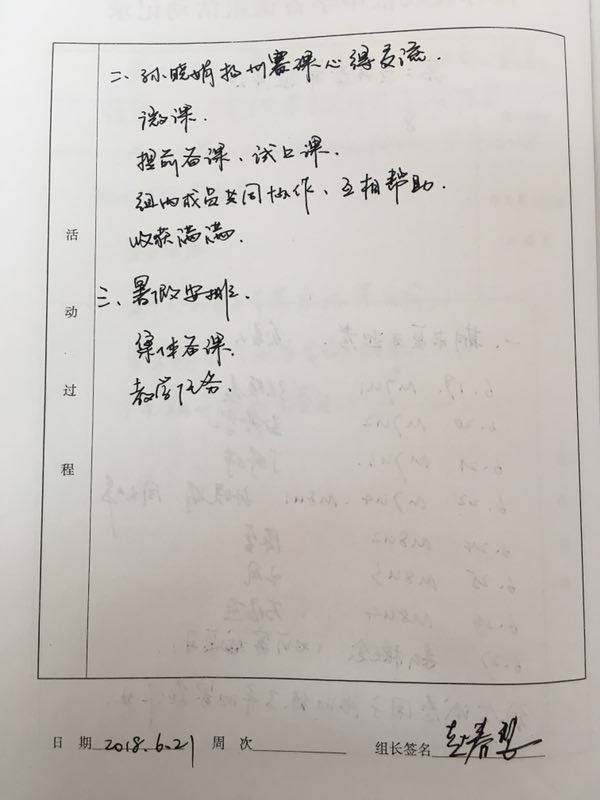 二、孙晓娟扬州赛课心得交流.
微课.
提前备课、试上课.
组内成员共同协作、互相帮助.
收获满满.
三、暑假安排.
集体备课.
教学任务.
活动过程
日 期 2018.6.21 周 次 组长签名